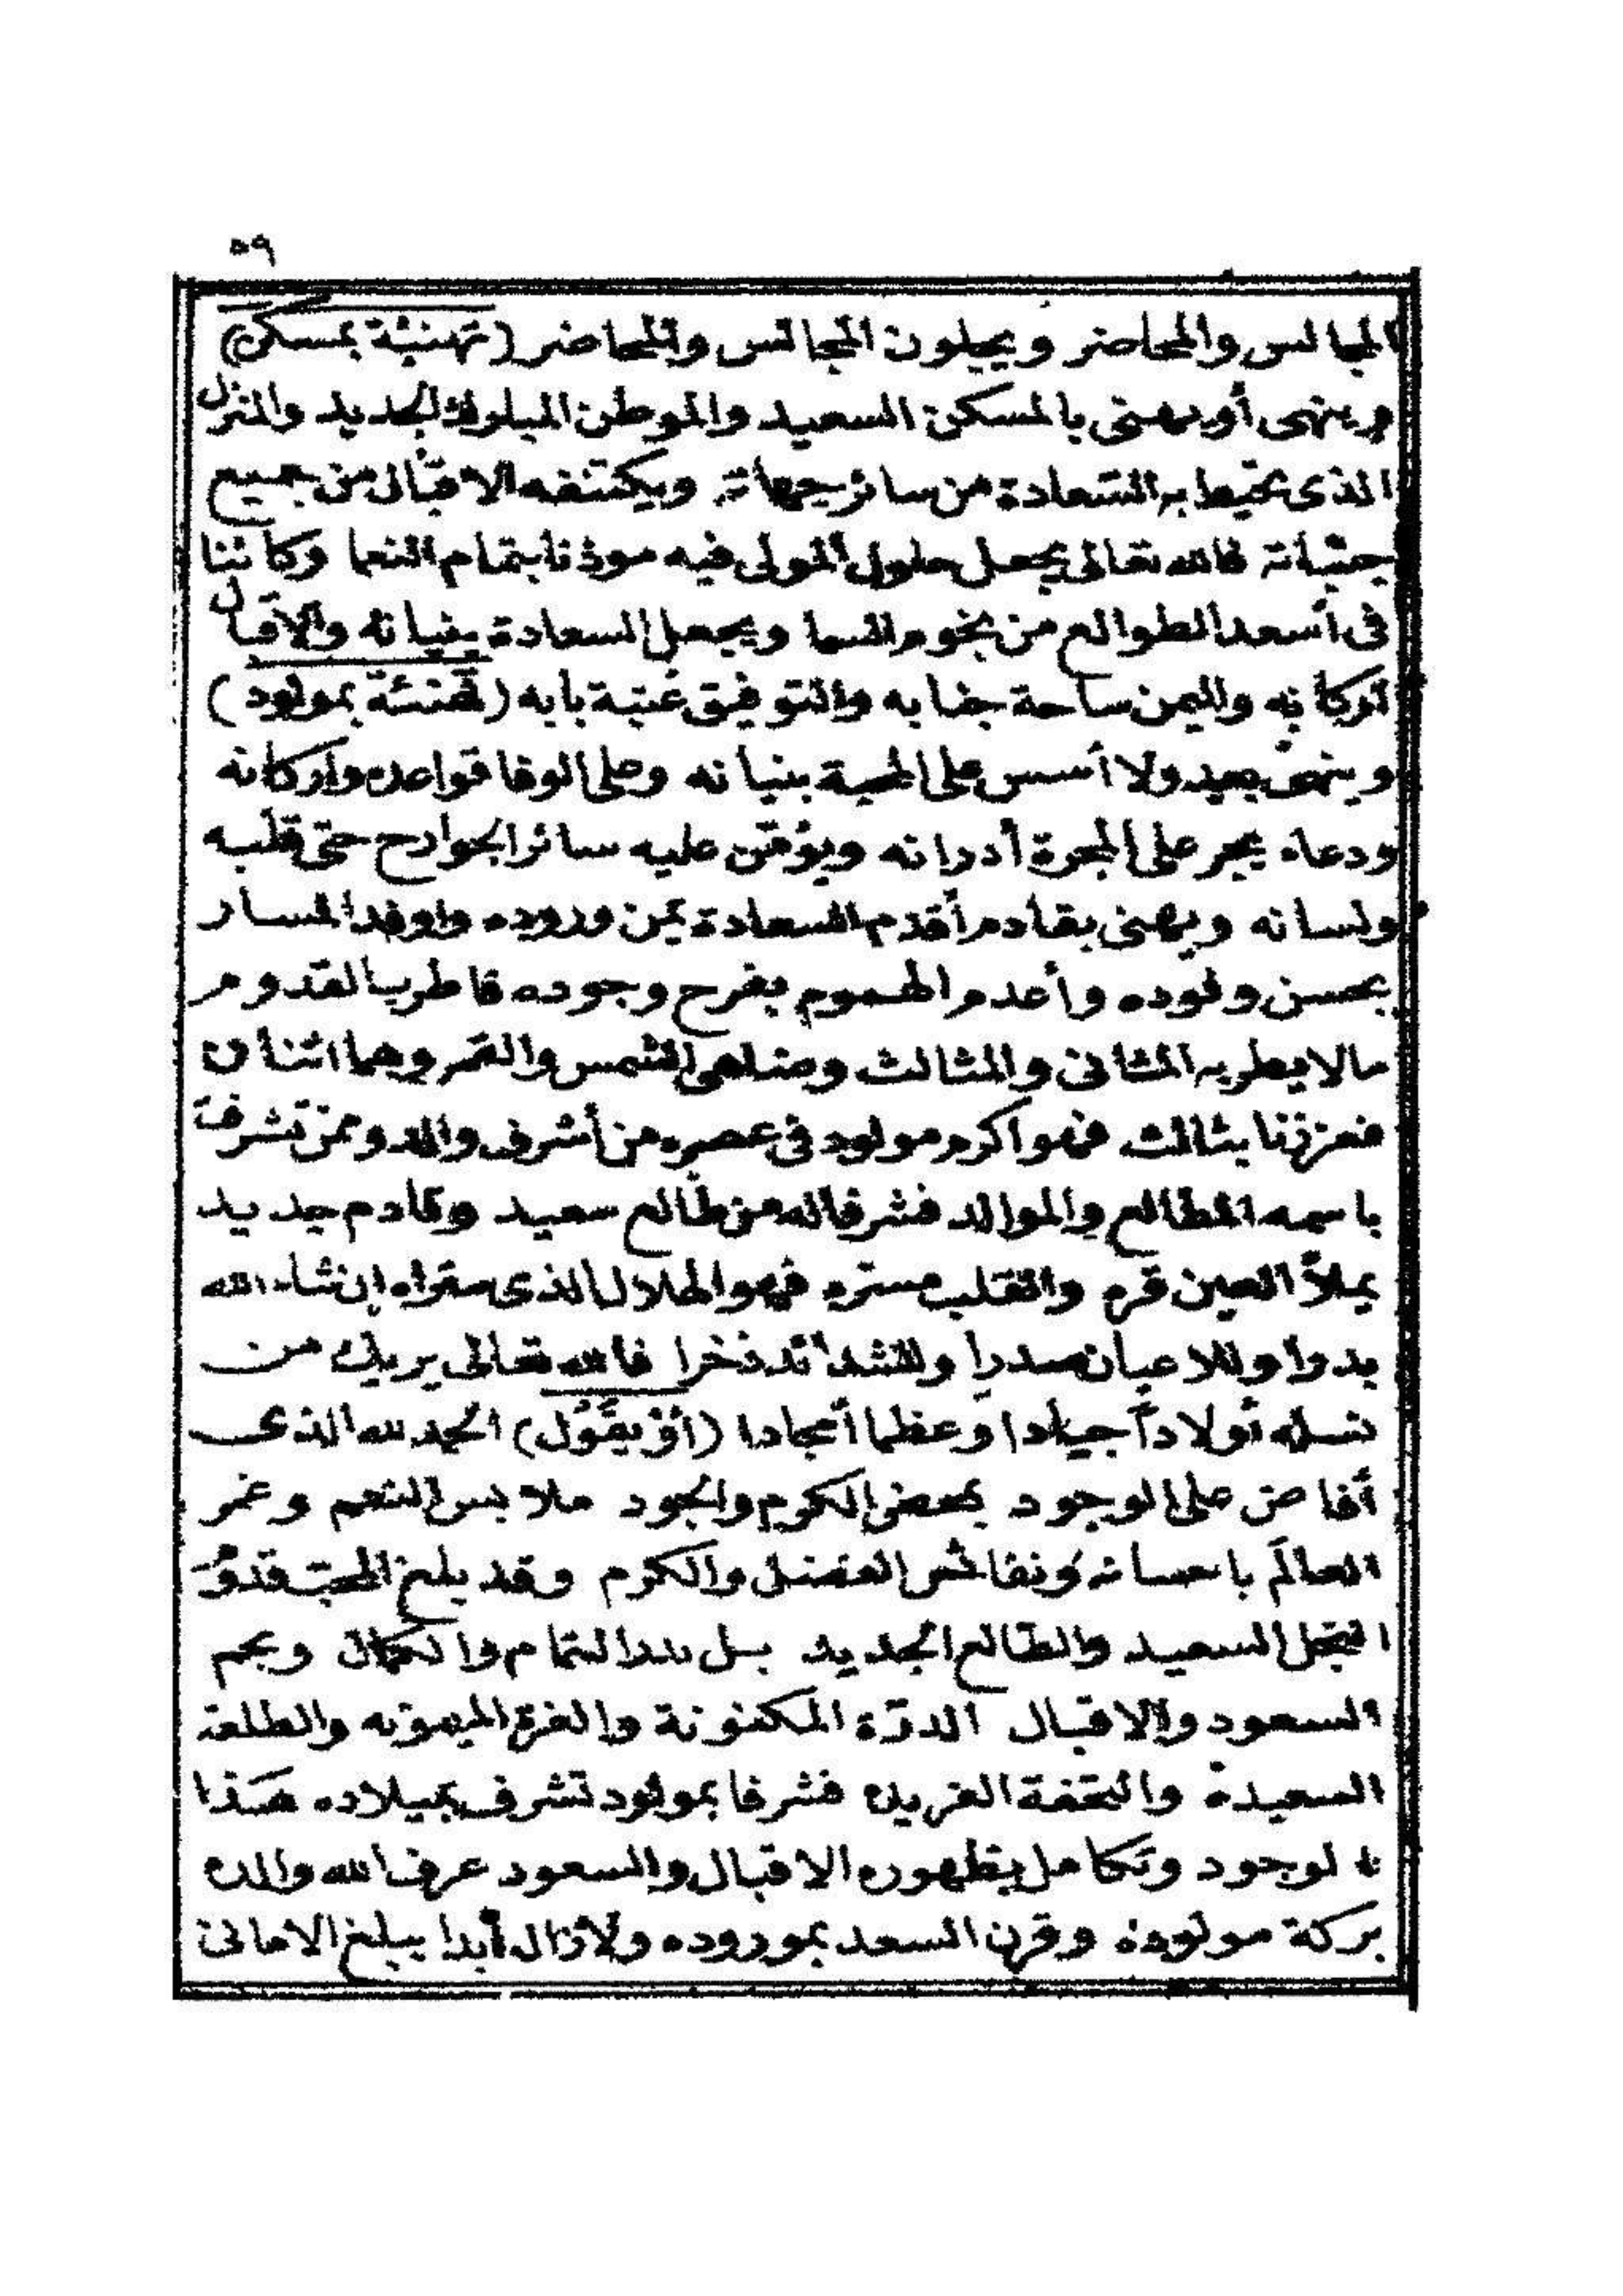 ٥٩
المجالس والمحاضر ويجلون المجالس والمحاضر (تهنئة بمسكن)
وينهى أو يهنى بالمسكن السعيد والموطن الجديد والمنزل
الذى تحيط به السعادة من سائر جهاته ويكتنفه الاقبال من جميع
جنباته فالله تعالى يجعل حلول المولى فيه موذنا بتمام النعما وكائنا
فى أسعد الطوالع من نجوم السما ويجعل السعادة بنيانه والاقبال
أركانه واليمن ساحة جنابه والتوفيق عتبة بابه (تهنئة بمولود)
وينهى ولا أسس على المحبة بنيانه وعلى الوفا قواعده واركانه
ودعاء يجر على المجرة أردانه ويؤمن عليه سائر الجوارح حتى قلبه
ولسانه ويهنى بقادم أقدم السعادة يمن وروده واوفد المسار
بحسن وفوده وأعدم الهموم بفرح وجوده فاطرب القدوم
مالا يطربه المثانى والمثالث وضاهى الشمس والقمر وهما اثنان
فعززنا بثالث فهو اكرم مولود فى عصره من أشرف والد وممن تشرفت
باسمه المطالع والموالد فشرفا له من طالع سعيد وقادم جديد
يملأ العين قره والقلب مسره فهو الهلال الذى ستراه ان شاء الله
بدرا وللاعيان صدرا وللشدائد ذخرا فالله تعالى يريك من
نسله أولادا جيادا وعظما أمجادا (أو يقول) الحمد لله الذى
أفاض على الوجود بمحض الكرم والجود ملابس النعم وغمر
العالم باحسانه ونفائس الفضل والكرم وقد بلغ المحب قدوم
النجل السعيد والطالع الجديد بل بدر التمام والكمال ونجم
السعود والاقبال الدرة المكنونة والغرة الميمونه والطلعة
السعيدة والتحفة الفريده فشرفا بمولود تشرف بميلاده هذا
الوجود وتكامل بظهوره الاقبال والسعود عرف الله والده
بركة مولوده وقرن السعد بموروده ولازال أبدا يبلغ الامانى